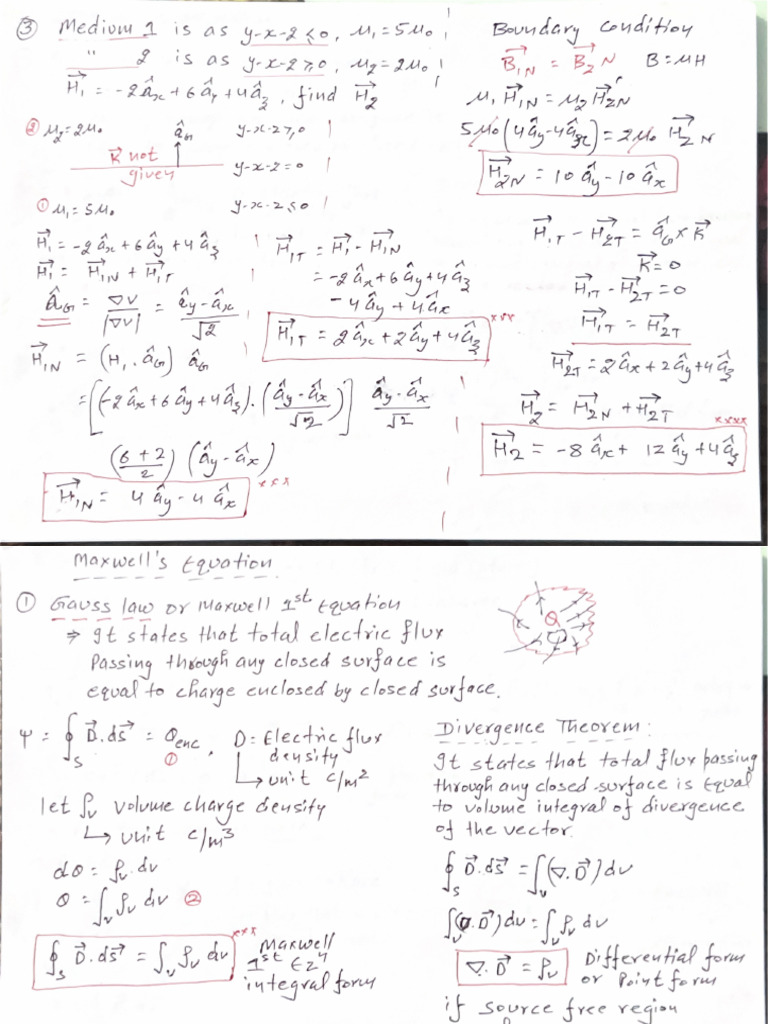 ③ Medium 1 is as y-x-2≤0, μ₁=5μ₀
" 2 is as y-x-2≥0, μ₂=2μ₀
H⃗₁ = -2âx+6ây+4âz, find H⃗₂
② μ₂=2μ₀ âₙ y-x-2≥0
K⃗ not given y-x-2=0
① μ₁=5μ₀ y-x-2≤0
H⃗₁=-2âx+6ây+4âz
H⃗₁= H⃗₁N+H⃗₁T
âₙ = ∇v/|∇v| = (ây-âx)/√2
H⃗₁N = (H₁.âₙ) âₙ
=[(-2âx+6ây+4âz).((ây-âx)/√2)] (ây-âx)/√2
((6+2)/2) (ây-âx)
H⃗₁N= 4ây-4âx ×××
H⃗₁T = H⃗₁-H⃗₁N
= -2âx+6ây+4âz
-4ây+4âx
H⃗₁T = 2âx+2ây+4âz ×××
Boundary condition
B⃗₁N = B⃗₂N B=μH
μ₁H⃗₁N=μ₂H⃗₂N
5μ₀(4ây-4âx)=2μ₀ H⃗₂N
H⃗₂N = 10ây-10âx
H⃗₁T - H⃗₂T = âₙ×K⃗
K⃗=0
H⃗₁T-H⃗₂T=0
H⃗₁T = H⃗₂T
H⃗₂T=2âx+2ây+4âz
H⃗₂ = H⃗₂N+H⃗₂T
H⃗₂ = -8âx+ 12ây+4âz ××××
Maxwell's Equation
① Gauss law or Maxwell 1st Equation
⇒ It states that total electric flux
passing through any closed surface is
equal to charge enclosed by closed surface.
Q
ψ = ∮s D⃗.ds⃗ = Qenc ①, D= Electric flux
density
↳ unit c/m²
let ρv volume charge density
↳ unit c/m³
dQ = ρv.dv
Q = ∫v ρv dv ②
∮s D⃗.ds⃗ = ∫v ρv dv ××× Maxwell
1st Eqn
integral form
Divergence Theorem:
It states that total flux passing
through any closed surface is Equal
to volume integral of divergence
of the vector.
∮s D⃗.ds⃗ = ∫v(∇.D⃗)dv
∫v(∇.D⃗)dv=∫v ρv dv
∇.D⃗ = ρv Differential form
or Point form
if source free region